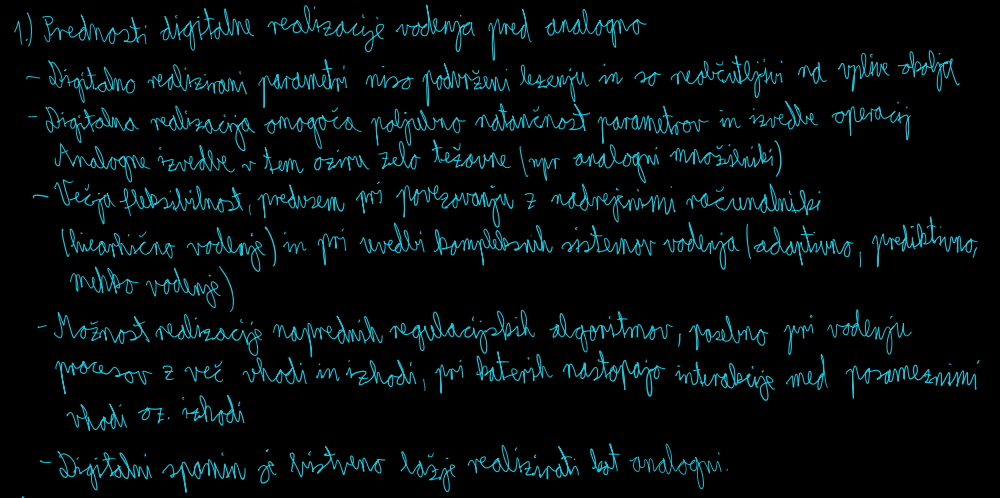 1.) Prednosti digitalne realizacije vodenja pred analogno
- Digitalno realizirani parametri niso podvrženi lezenju in so neobčutljivi na vplive okolja
- Digitalna realizacija omogoča poljubno natančnost parametrov in izvedbe operacij
Analogne izvedbe v tem oziru zelo težavne (npr analogni množilniki)
- Večja fleksibilnost, predvsem pri povezovanju z nadrejenimi računalniki
(hierarhično vodenje) in pri uvedbi kompleksnih sistemov vodenja (adaptivno, prediktivno,
mehko vodenje)
- Možnost realizacije naprednih regulacijskih algoritmov, posebno pri vodenju
procesov z več vhodi in izhodi, pri katerih nastopajo interakcije med posameznimi
vhodi oz. izhodi
- Digitalni spomin je bistveno lažje realizirati kot analogni.